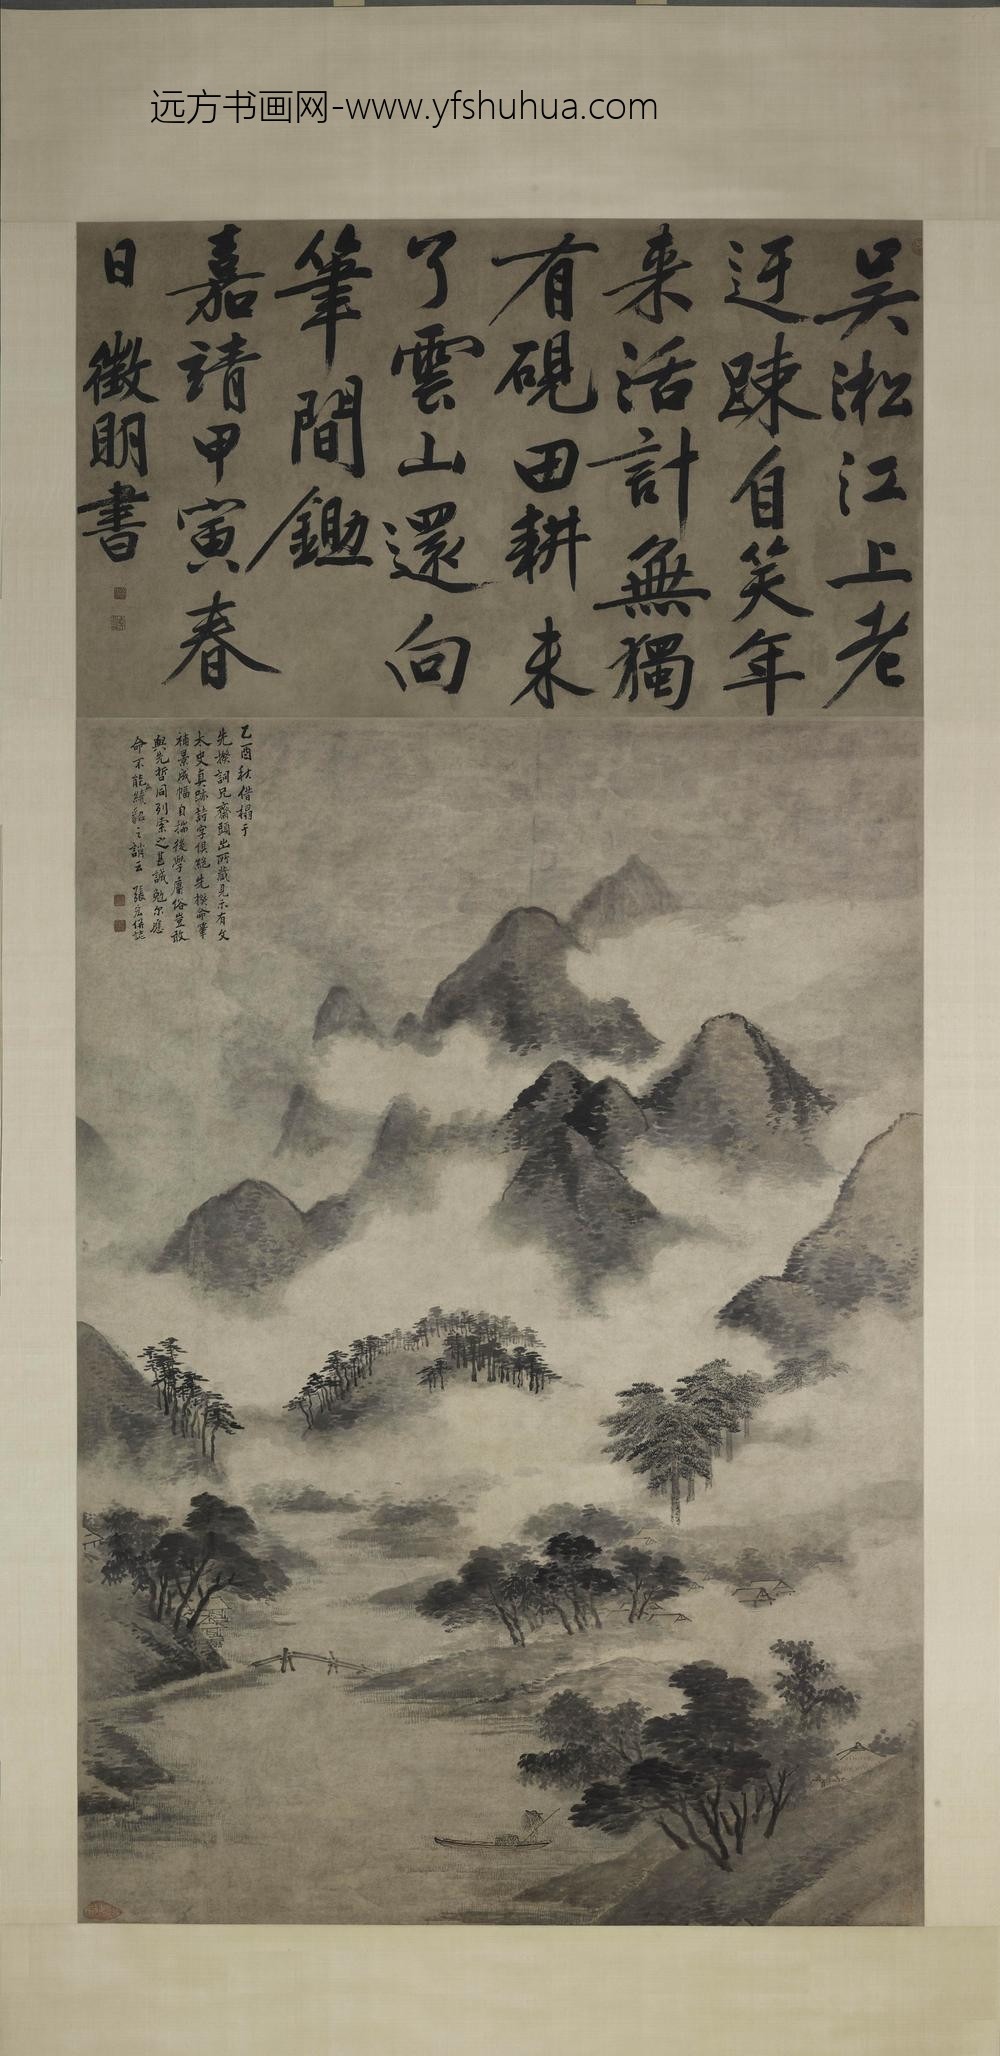 远方书画网-www.yfshuhua.com
吴淞江上老
迂踈自笑年
来活計無獨
有硯田耕未
了雲山還向
筆間鋤
嘉靖甲寅春
日 徵明書
乙酉秋借榻于
先揆詞兄齋頭出所藏見示有文
太史真跡詩字俱絶先揆命筆
補景成幅自揣後學庸俗豈敢
與先哲同列索之甚誠勉尔應
命不能續貂之誚云 張宏併誌